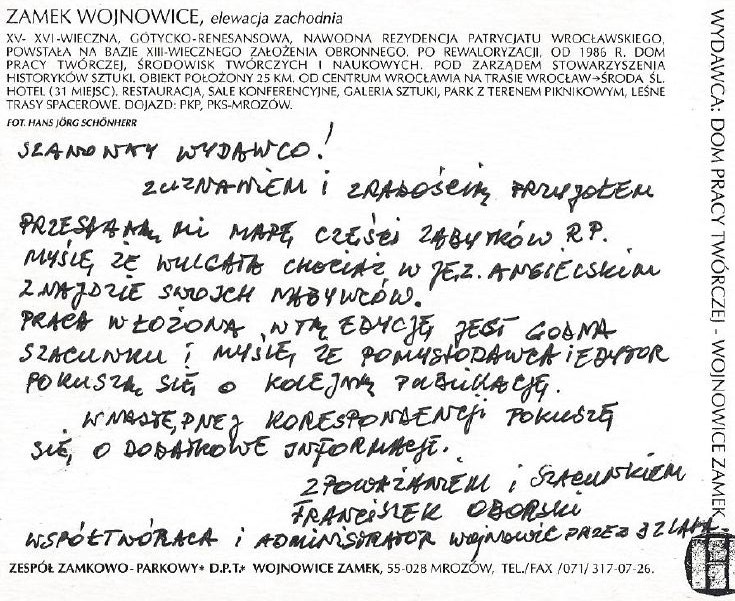 ZAMEK WOJNOWICE, elewacja zachodnia
XV- XVI-WIECZNA, GOTYCKO-RENESANSOWA, NAWODNA REZYDENCJA PATRYCJATU WROCŁAWSKIEGO,
POWSTAŁA NA BAZIE XIII-WIECZNEGO ZAŁOŻENIA OBRONNEGO. PO REWALORYZACJI, OD 1986 R. DOM
PRACY TWÓRCZEJ, ŚRODOWISK TWÓRCZYCH I NAUKOWYCH. POD ZARZĄDEM STOWARZYSZENIA
HISTORYKÓW SZTUKI. OBIEKT POŁOŻONY 25 KM. OD CENTRUM WROCŁAWIA NA TRASIE WROCŁAW→ŚRODA ŚL.
HOTEL (31 MIEJSC). RESTAURACJA, SALE KONFERENCYJNE, GALERIA SZTUKI, PARK Z TERENEM PIKNIKOWYM, LEŚNE
TRASY SPACEROWE. DOJAZD: PKP, PKS-MROZÓW.
FOT. HANS JÖRG SCHÖNHERR
SZANOWNY WYDAWCO!
Z UZNANIEM I Z RADOŚCIĄ PRZYJĄŁEM
PRZESŁANĄ MI MAPĘ CZĘŚCI ZABYTKÓW R.P.
MYŚLĘ, ŻE WULGATA CHOCIAŻ W JĘZ. ANGIELSKIM
ZNAJDZIE SWOICH NABYWCÓW.
PRACA WŁOŻONA W TĄ EDYCJĘ JEST GODNA
SZACUNKU I MYŚLĘ, ŻE POMYSŁODAWCA I EDYTOR
POKUSZĄ SIĘ O KOLEJNĄ PUBLIKACJĘ.
W NASTĘPNEJ KORESPONDENCJI POKUSZĘ
SIĘ O DODATKOWE INFORMACJE.
Z POWAŻANIEM I SZACUNKIEM
FRANCISZEK OBORSKI
WSPÓŁTWÓRCA I ADMINISTRATOR WOJNOWIC PRZEZ LATA
ZESPÓŁ ZAMKOWO-PARKOWY* D.P.T.* WOJNOWICE ZAMEK, 55-028 MROZÓW, TEL./FAX /071/ 317-07-26.
WYDAWCA: DOM PRACY TWÓRCZEJ - WOJNOWICE ZAMEK